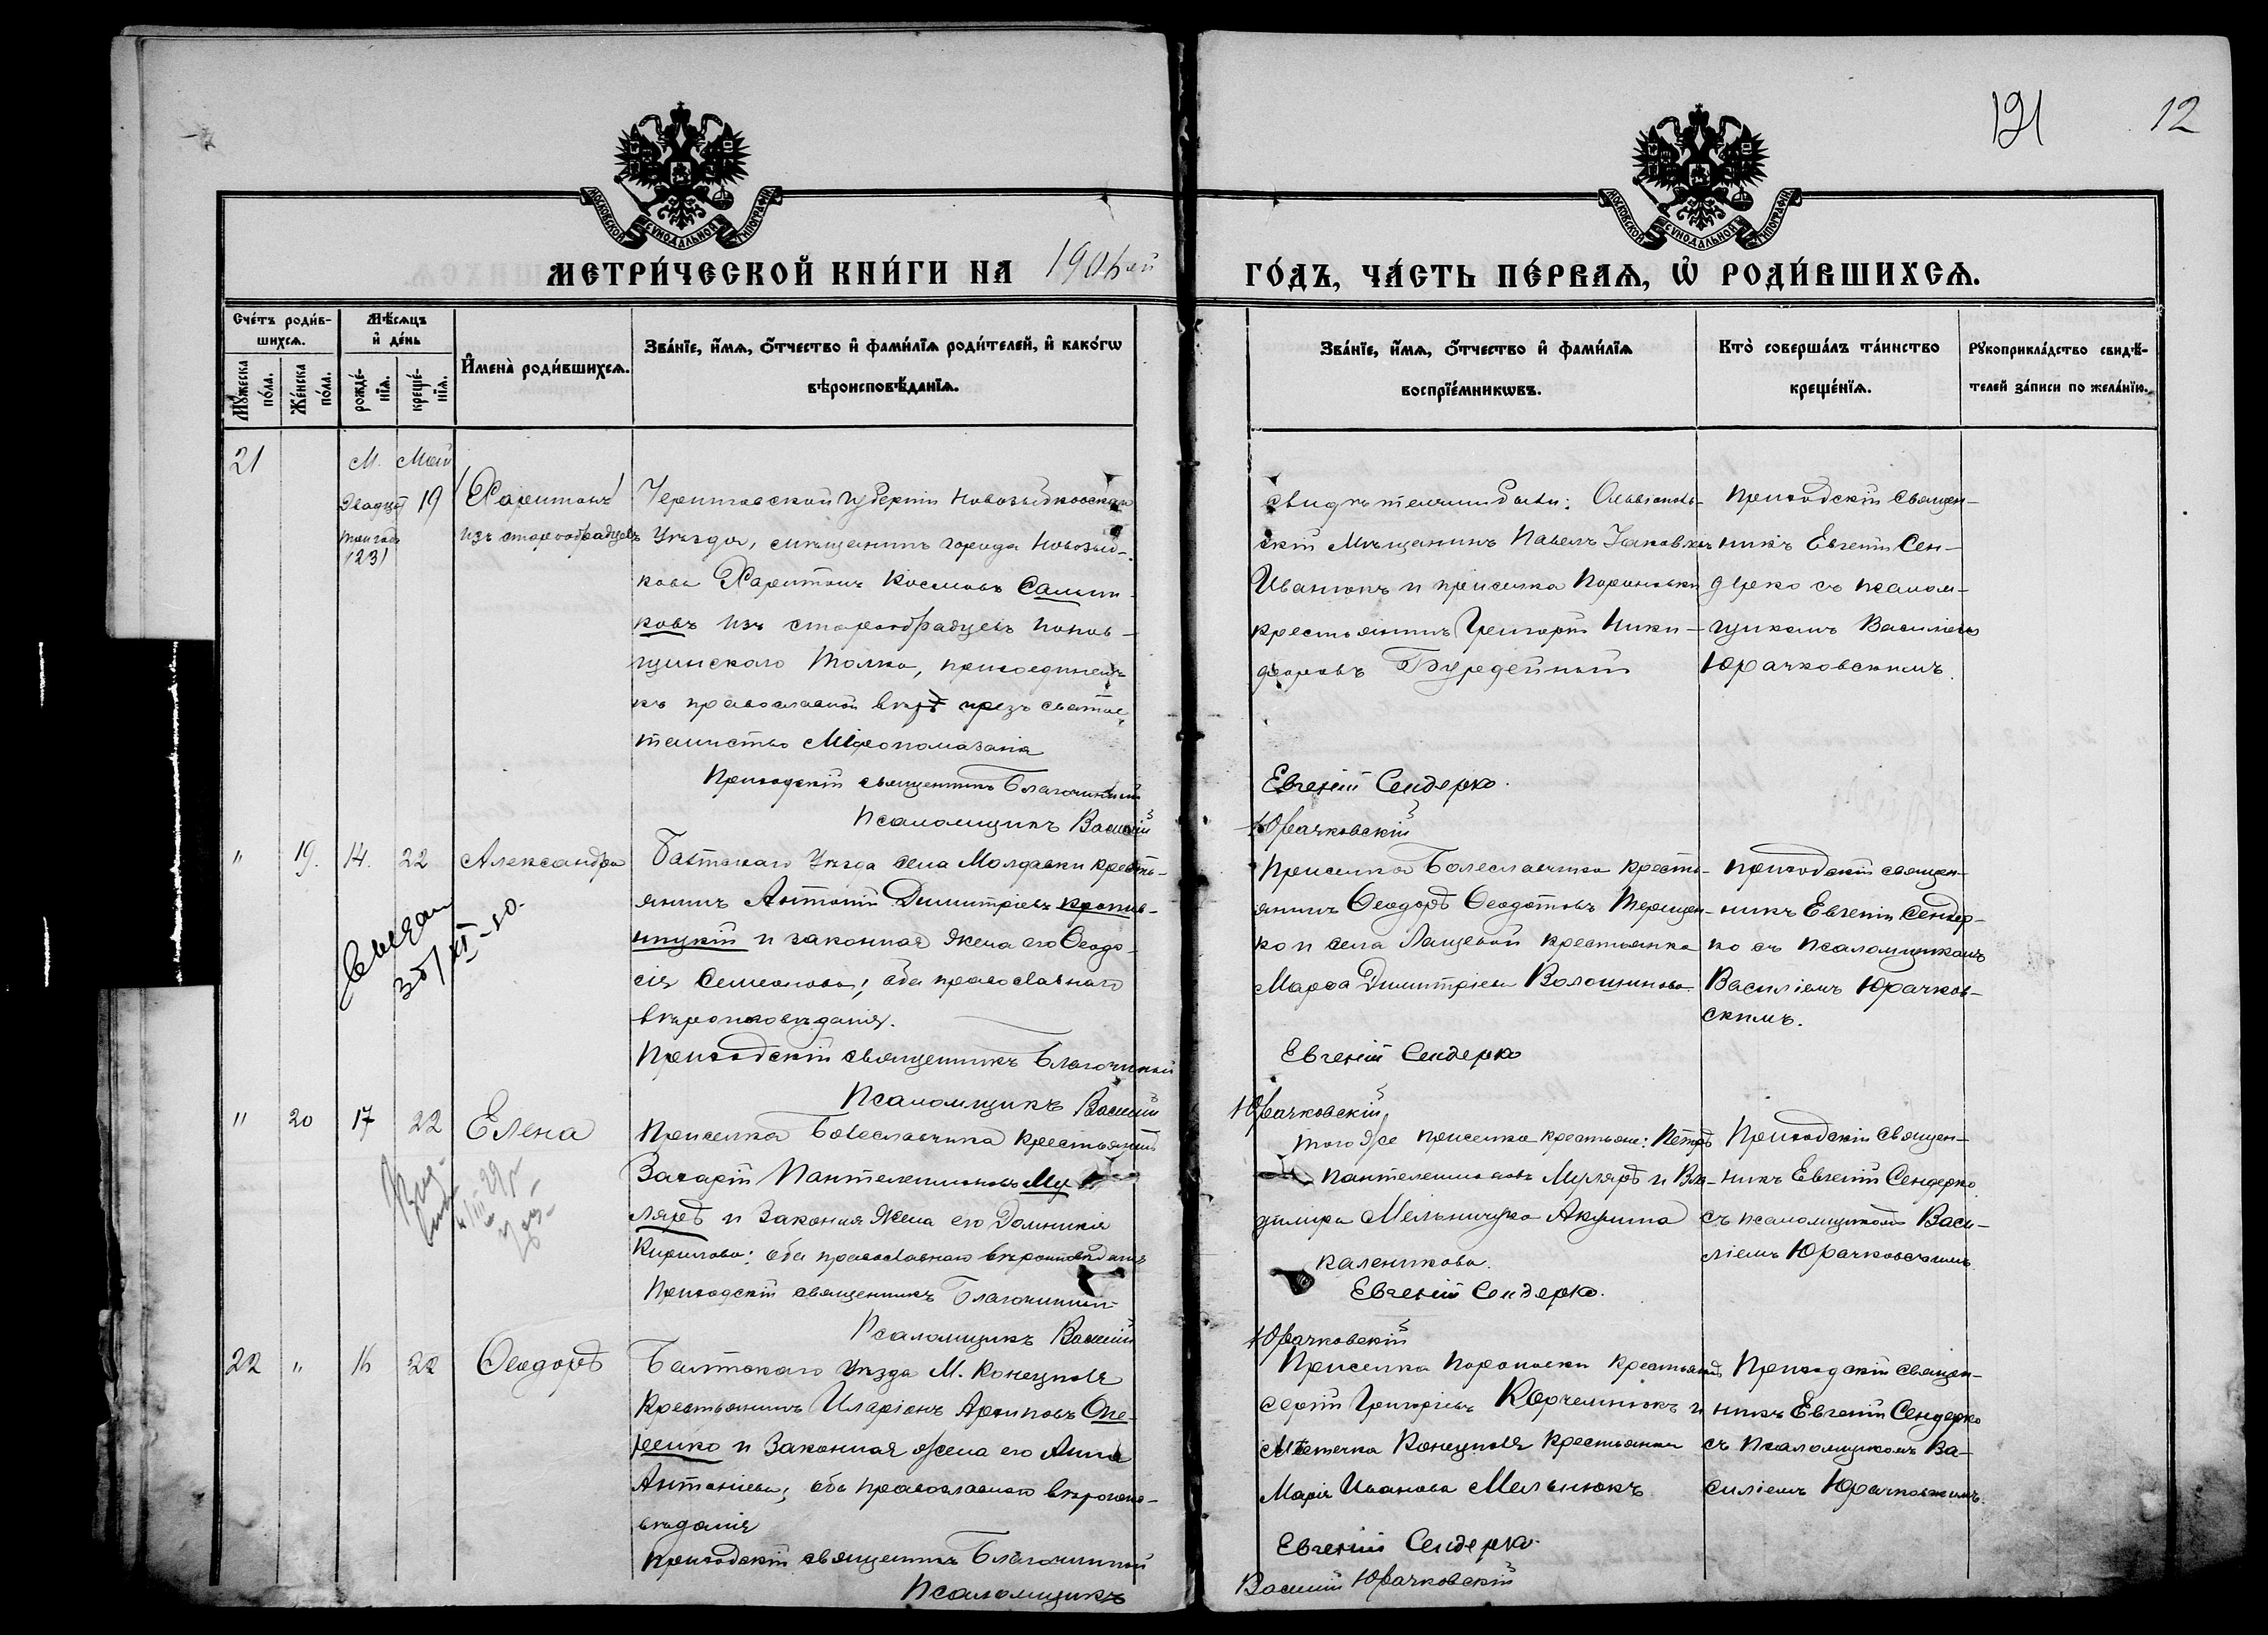 191
12
МОСКОВСКОЙ СѴНОДАЛЬНОЙ ТИПОГРАФІИ
МОСКОВСКОЙ СѴНОДАЛЬНОЙ ТИПОГРАФІИ
МЕТРИ́ЧЕСКОЙ КНИ́ГИ НА
ГО́ДЪ, ЧА́СТЬ ПЕ́РВАѦ, Ѡ҆ РОДИ́ВШИХСѦ.
Сче́тъ роди́в-
шихсѧ.
Мꙋ́жеска по́ла.
Же́нска по́ла.
Мѣ́сѧцъ
и҆ де́нь
рожде́-
нїѧ.
креще́-
нїѧ.
И҆мена̀ роди́вшихсѧ.
Зва́нїе, и҆́мѧ, ѻ҆́тчество и҆ фами́лїѧ роди́телей, и҆ како́гѡ
вѣроисповѣ́данїѧ.
Зва́нїе, и҆́мѧ, ѻ҆́тчество и҆ фами́лїѧ
воспрїе́мникѡвъ.
Кто̀ соверша́лъ та́инство
креще́нїѧ.
Рꙋкоприкла́дство свидѣ́-
телей за́писи по жела́нїю.
21
М. Май
19
Харитонъ
изъ старообрадцевъ
Черниговской губерніи Новозыбковскаго
уѣзда, мѣщанинъ города Новозыб-
кова Харитонъ Космовъ Сальни-
ковъ изъ старообрадцевъ попов-
щинскаго толка, присоединенъ
къ православной вѣрѣ чрезъ святое
таинство Мѵропомазанія
Приходскій священникъ Благочинный
Псаломщикъ Василій
свидѣтелями были: Ольвіополь-
скій мѣщанинъ Павелъ Іаковлевъ
Иванюкъ и приселка
крестьянинъ Григорій Ники-
форовъ
Евгеній Сендерко.
Юрачковскій
Приходскій священ-
никъ Евгеній Сен-
дерко съ псалом-
щикомъ Василіемъ
Юрачковскимъ.
"
19.
14.
22
Александра
30/XI-50.
Балтскаго уѣзда села Молдавки кресть-
янинъ Антоній Димитріевъ Кропив-
ницкій и законная жена его Ѳеодо-
сія Семеонова; оба православнаго
вѣроисповѣданія.
Приходскій священникъ Благочинный
Псаломщикъ Василій
Приселка Болеславчика кресть-
янинъ Ѳеодоръ Ѳеодотовъ Терещен-
ко и села Лащевой крестьянка
Марѳа Димитріева Волошинова.
Евгеній Сендерко
Юрачковскій
Приходскій священ-
никъ Евгеній Сендер-
ко съ псаломщикомъ
Василіемъ Юрачков-
скимъ.
"
20
17
22
Елена
Приселка Болеславчика крестьянинъ
Захарій Пантелеимоновъ Му-
ляръ и законная жена его Домникія
Кирилова; оба православнаго вѣроисповѣданія
Приходскій священникъ Благочинный
Псаломщикъ Василій
того же приселка крестьяне: Петръ
Пантелеимоновъ Муляръ и Вла-
диміра Мельничука Акулина
Каленикова.
Евгеній Сендерко.
Юрачковскій
Приходскій священ-
никъ Евгеній Сендерко
съ псаломщикомъ Васи-
ліемъ Юрачковскимъ.
22
"
16
22
Ѳеодоръ
Балтскаго уѣзда М. Конецполя
крестьянинъ Иларіонъ Архиповъ
и законная жена его Анна
Антоніева; оба православнаго вѣроиспо-
вѣданія
Приходскій священникъ Благочинный
Псаломщикъ
Приселка крестьянинъ
Сергій Григорьевъ Корчемнюкъ и
Мѣстечка Конецполя крестьянка
Марія Иванова Мельнюкъ
Евгеній Сендерко.
Василій Юрачковскій
Приходскій священ-
никъ Евгеній Сендерко
съ псаломщикомъ Ва-
силіемъ Юрачковскимъ.